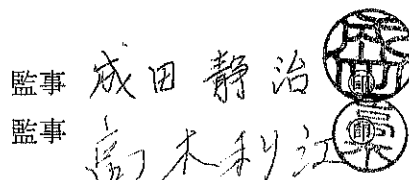 監事 成田 静治 ㊞
監事 高木利江 ㊞